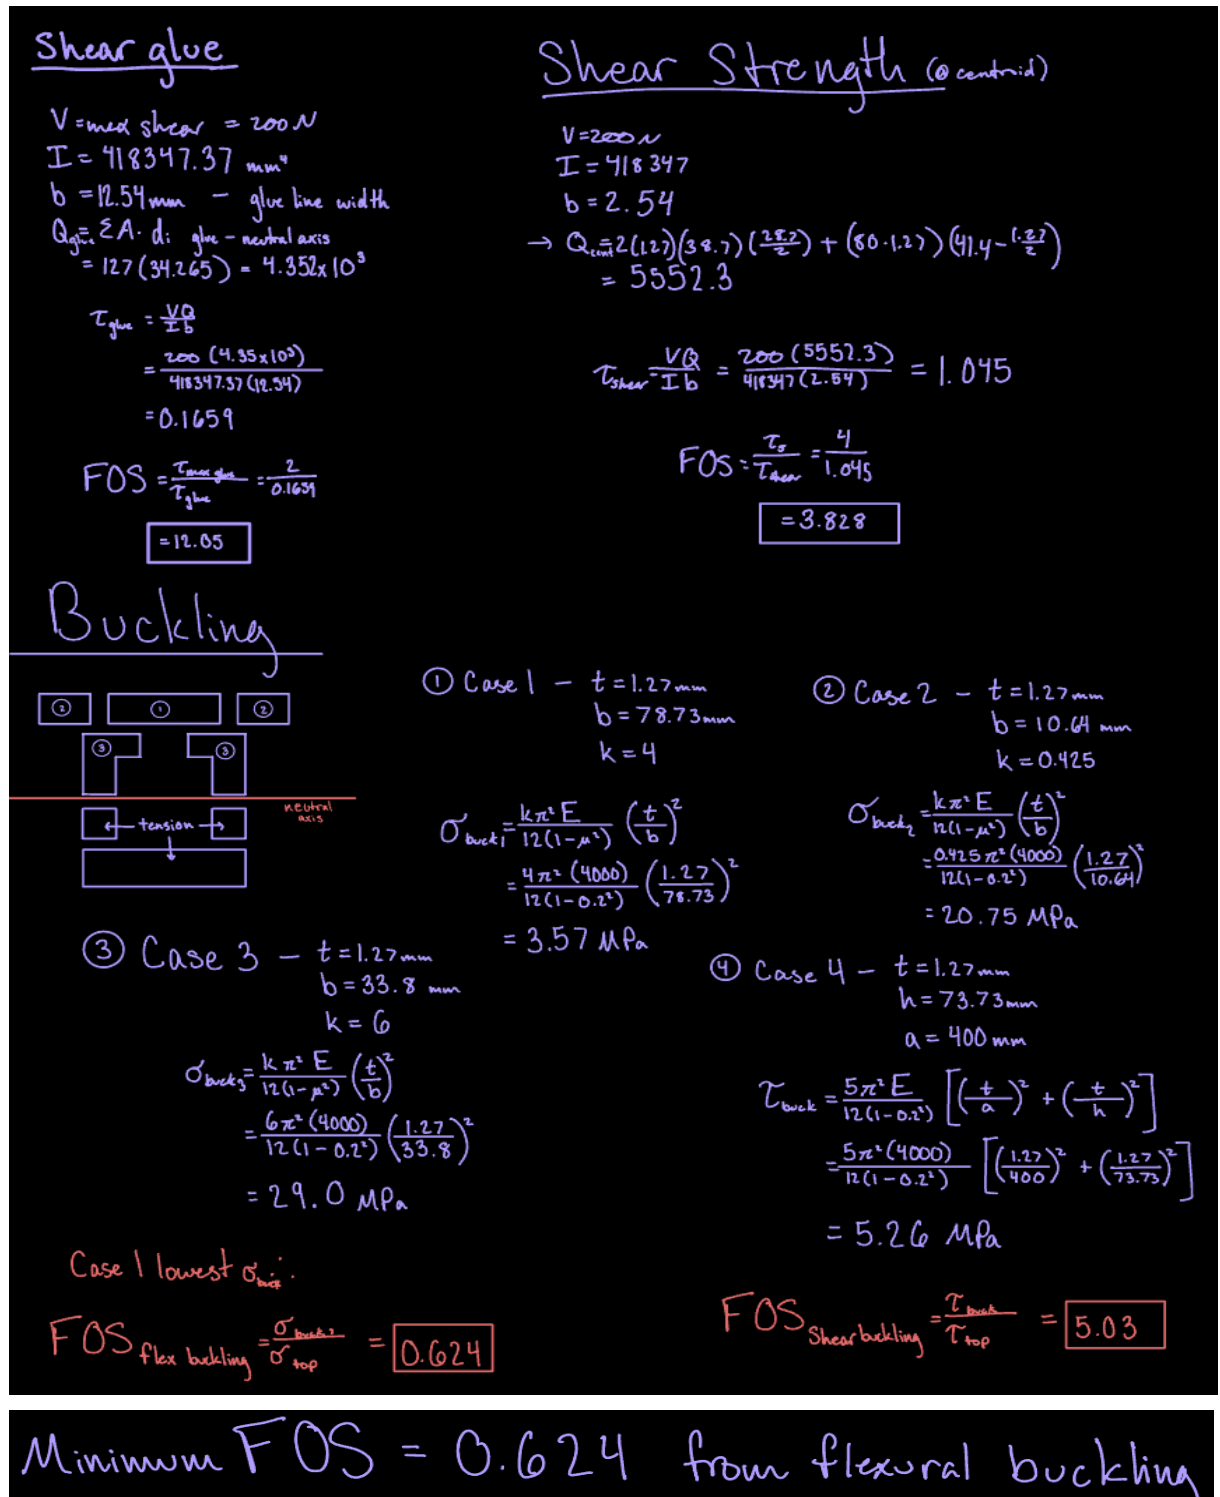 Shear glue
V = max shear = 200 N
I = 418347.37 mm⁴
b = 12.54 mm – glue line width
Qglue = ΣA · di glue – neutral axis
= 127 (34.265) = 4.352x10³
τglue = VQ / Ib
= 200 (4.35x10³) / 418347.37 (12.54)
= 0.1659
FOS = τmax glue / τglue = 2 / 0.1659
= 12.05
Shear Strength (@ centroid)
V = 200 N
I = 418347
b = 2.54
→ Qcent = 2(1.27)(38.7)(28.7/2) + (80·1.27)(41.4 - 1.27/2)
= 5552.3
τshear = VQ / Ib = 200 (5552.3) / 418347 (2.54) = 1.045
FOS = τσ / τshear = 4 / 1.045
= 3.828
Buckling
② ① ②
③ ③
neutral axis
← tension →
① Case 1 – t = 1.27 mm
b = 78.73 mm
k = 4
σbuck1 = kπ²E / 12(1-μ²) (t/b)²
= 4π² (4000) / 12(1-0.2²) (1.27/78.73)²
= 3.57 MPa
② Case 2 – t = 1.27 mm
b = 10.64 mm
k = 0.425
σbuck2 = kπ²E / 12(1-μ²) (t/b)²
= 0.425π² (4000) / 12(1-0.2²) (1.27/10.64)²
= 20.75 MPa
③ Case 3 – t = 1.27 mm
b = 33.8 mm
k = 6
σbuck3 = kπ²E / 12(1-μ²) (t/b)²
= 6π² (4000) / 12(1-0.2²) (1.27/33.8)²
= 29.0 MPa
④ Case 4 – t = 1.27 mm
h = 73.73 mm
a = 400 mm
τbuck = 5π²E / 12(1-0.2²) [(t/a)² + (t/h)²]
= 5π² (4000) / 12(1-0.2²) [(1.27/400)² + (1.27/73.73)²]
= 5.26 MPa
Case 1 lowest σbuck ∴
FOS flex buckling = σbuck1 / σtop = 0.624
FOS Shear buckling = τbuck / τtop = 5.03
Minimum FOS = 0.624 from flexural buckling